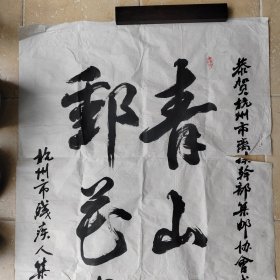 恭贺杭州市离休干部集邮协會成
青山
郵花
杭州市残疾人集